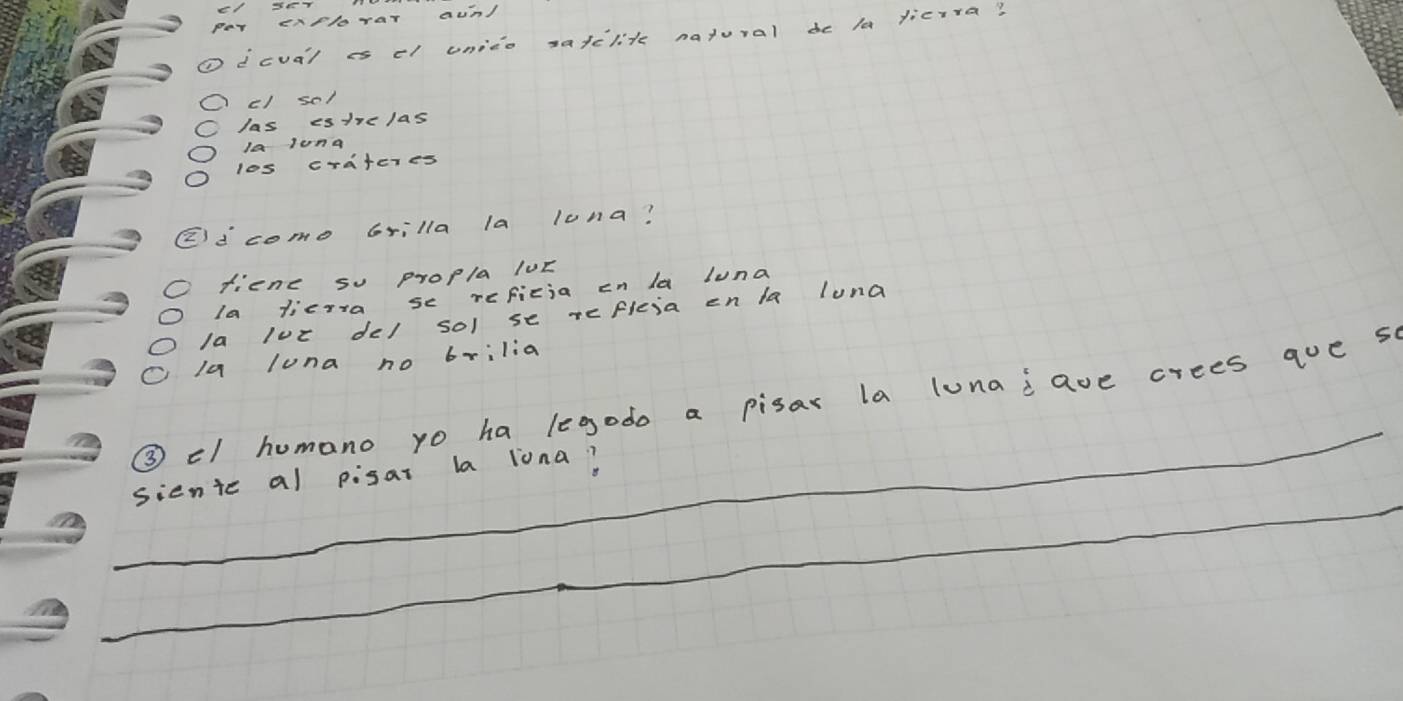 el ser
por explorar aún)
① ¿cuál es el unico satélite natural de la tierra?
el sol
las estrelas
la luna
los cráteres
② ¿como brilla la luna?
tiene su propla luz
la tierra se reficja en la luna
la luz del sol se refleja en la luna
la luna no brilia
③ el humano yo ha legodo a pisar la luna ¿que crees que se
siente al pisar la luna?